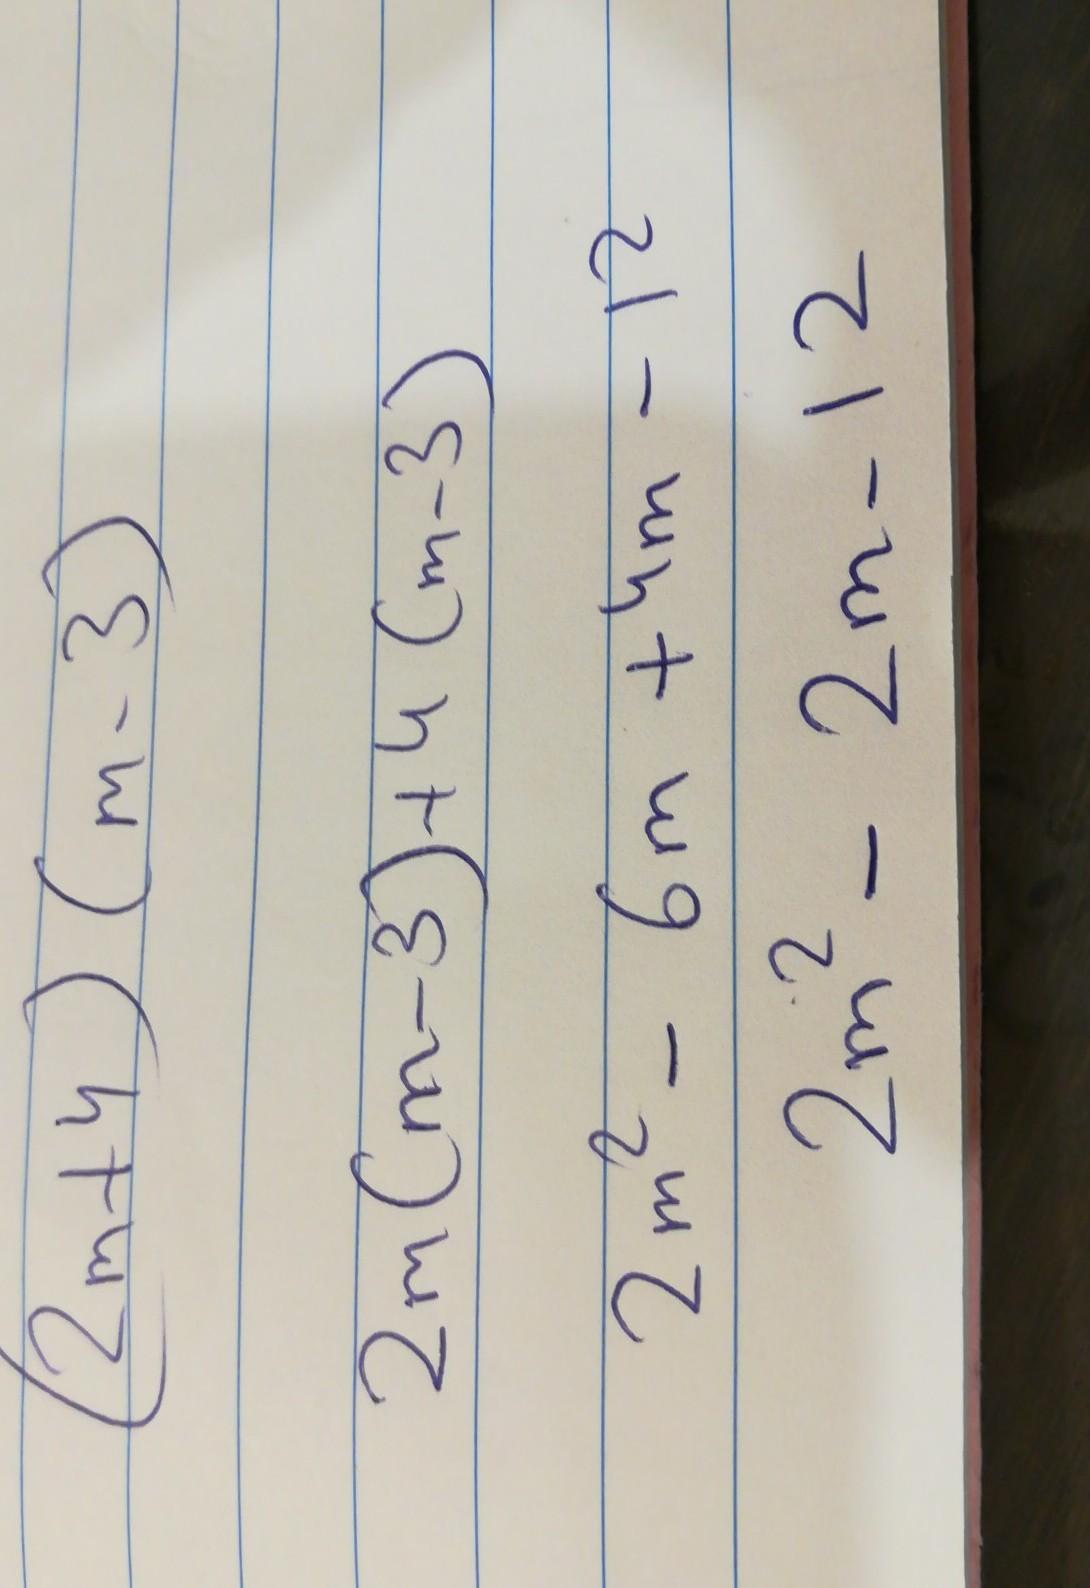 (2m+4)(m-3)
2m(m-3)+4(m-3)
2m² - 6m +4m - 12
2m² - 2m - 12